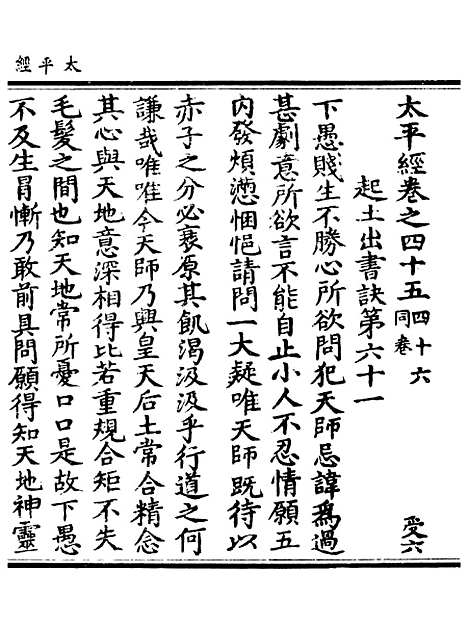 太平經
太平經卷之四十五四十六同卷 受六
起土出書訣第六十一
下愚賤生不勝心所欲問犯天師忌諱爲過
甚劇意所欲言不能自止小人不忍情願五
內發煩懣悃悒請問一大疑唯天師既待以
赤子之分必衷原其飢渴汲汲乎行道之何
謙哉唯唯今天師乃與皇天后土常合精念
其心與天地意深相得比若重規合矩不失
毛髮之間也知天地常所憂口口是故下愚
不及生冐慚乃敢前具問願得知天地神靈